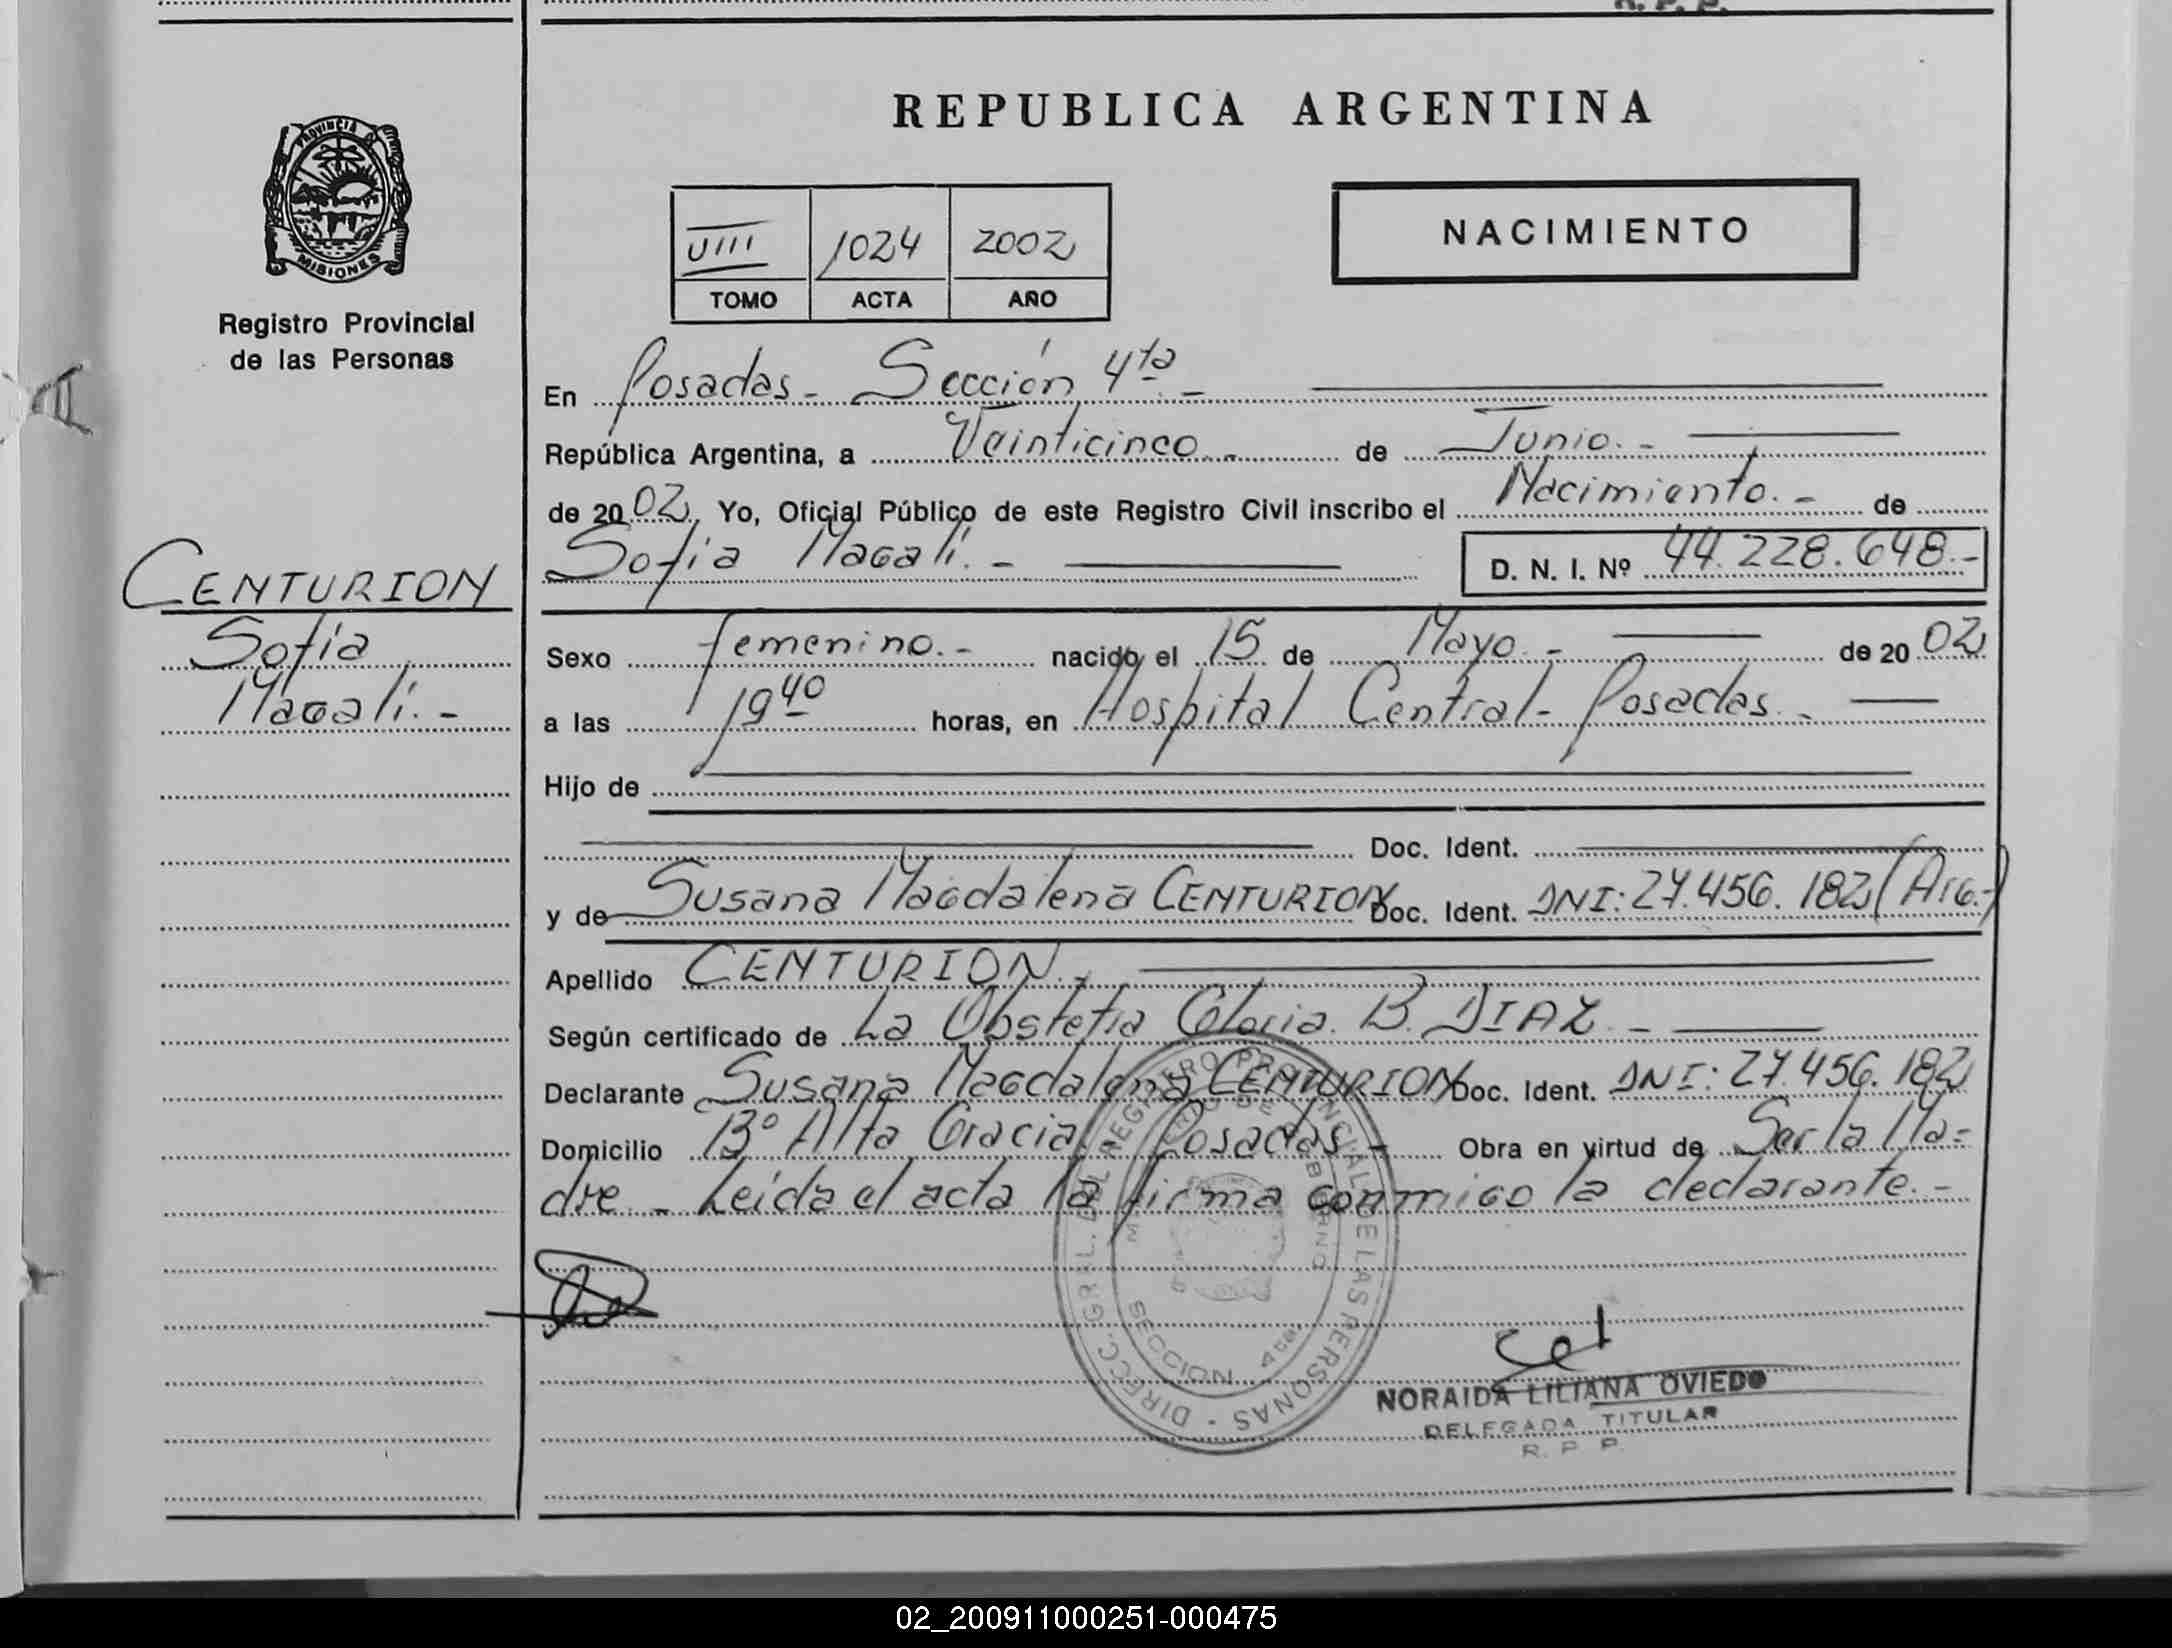 R. P. P.
REPUBLICA ARGENTINA
PROVINCIA DE
MISIONES
Registro Provincial
de las Personas
VIII 1024 2002
TOMO ACTA AÑO
NACIMIENTO
En Posadas - Sección 4ta -
República Argentina, a Veinticinco.- de Junio.-
de 2002, Yo, Oficial Público de este Registro Civil inscribo el Nacimiento.- de
Sofia Magalí.- D. N. I. Nº 44.228.648.-
CENTURION
Sofia
Magalí.-
Sexo femenino.- nacido el 15 de Mayo.- de 2002
a las 19 40 horas, en Hospital Central - Posadas.-
Hijo de
Doc. Ident.
y de Susana Magdalena CENTURION Doc. Ident. DNI: 27.456.182 (Arg.-)
Apellido CENTURION.-
Según certificado de La Obstetra Gloria B. DIAZ.-
Declarante Susana Magdalena CENTURION Doc. Ident. DNI: 27.456.182
Domicilio Bº Alta Gracia - Posadas - Obra en virtud de Ser la Ma-
dre.- Leida el acta la firma conmigo la declarante.-
DIRECC. GRAL. DEL REGISTRO PROVINCIAL DE LAS PERSONAS -
DE GOBIERNO
SECCION 4ta.
NORAIDA LILIANA OVIEDO
DELEGADA TITULAR
R. P. P.
02_200911000251-000475